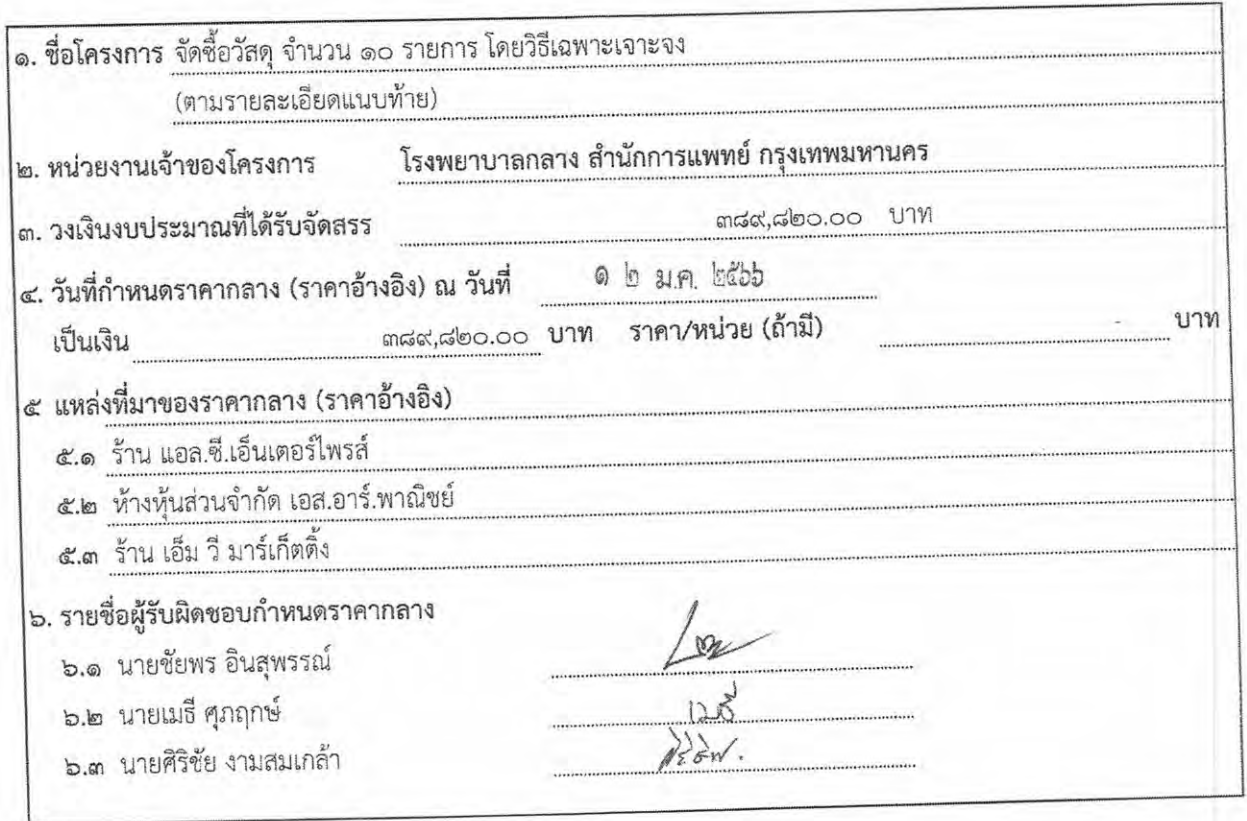 ๑. ชื่อโครงการ จัดซื้อวัสดุ จำนวน ๑๐ รายการ โดยวิธีเฉพาะเจาะจง
(ตามรายละเอียดแนบท้าย)
๒. หน่วยงานเจ้าของโครงการ โรงพยาบาลกลาง สำนักการแพทย์ กรุงเทพมหานคร
๓. วงเงินงบประมาณที่ได้รับจัดสรร ๓๘๙,๘๒๐.๐๐ บาท
๔. วันที่กำหนดราคากลาง (ราคาอ้างอิง) ณ วันที่ ๑ ๒ ม.ค. ๒๕๖๖
เป็นเงิน ๓๘๙,๘๒๐.๐๐ บาท ราคา/หน่วย (ถ้ามี) - บาท
๕ แหล่งที่มาของราคากลาง (ราคาอ้างอิง)
๕.๑ ร้าน แอล.ซี.เอ็นเตอร์ไพรส์
๕.๒ ห้างหุ้นส่วนจำกัด เอส.อาร์.พาณิชย์
๕.๓ ร้าน เอ็ม วี มาร์เก็ตติ้ง
๖. รายชื่อผู้รับผิดชอบกำหนดราคากลาง
๖.๑ นายชัยพร อินสุพรรณ์
๖.๒ นายเมธี ศุภฤกษ์ เมธี
๖.๓ นายศิริชัย งามสมเกล้า